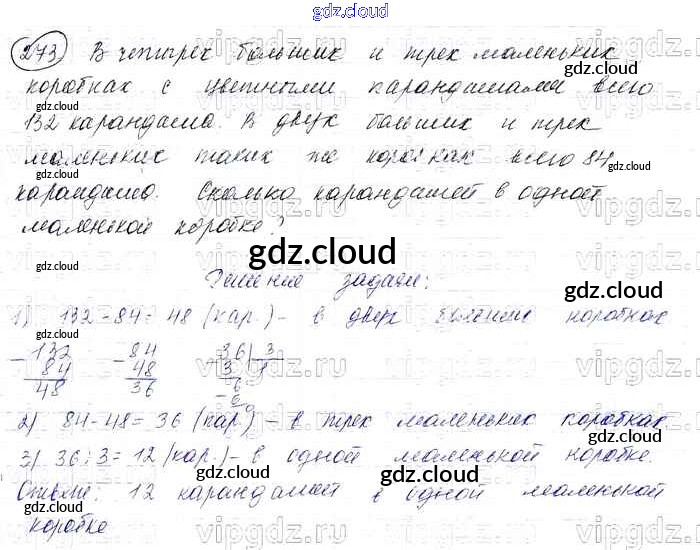 gdz.cloud
273 В четырех больших и трех маленьких
коробках с цветными карандашами всего
132 карандаша. В двух больших и трех
маленьких таких же коробках всего 84
карандаша. Сколько карандашей в одной
маленькой коробке?
gdz.cloud
Решение задачи:
1) 132-84=48 (кар.) - в двух больших коробках
132 84 36 3
84 48 3 1
48 36 6
6
0
2) 84-48=36 (кар.) - в трех маленьких коробках
3) 36:3=12 (кар.) - в одной маленькой коробке.
Ответ: 12 карандашей в одной маленькой
коробке